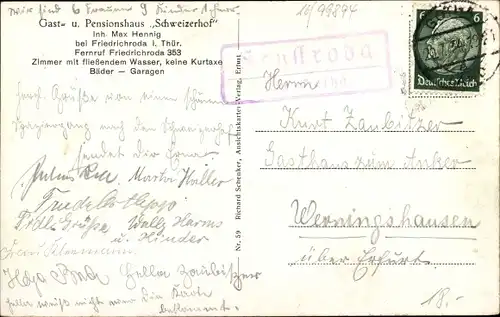 wir sind 6 Frauen 9 Kinder
Gast- u. Pensionshaus „Schweizerhof"
Inh. Max Hennig
bei Friedrichroda i. Thür.
Fernruf Friedrichroda 353
Zimmer mit fließendem Wasser, keine Kurtaxe
Bäder — Garagen
Herzl. Grüße von einem schönen
Spaziergang nach dem Schweizerhof
sendet Dir
Martha Haller
Frdl. Grüße Wally Harms
u. Kinder
Hella Zaubitzer
Hella weiß nicht wer die Karte
bekommt.
Nr. 59 Richard Schenker, Ansichtskarten-Verlag, Erfurt
10/99894
6
Deutsches Reich
Herrn
Kurt Zaubitzer
Gasthaus zum Anker
Werningshausen
über Erfurt
18.-